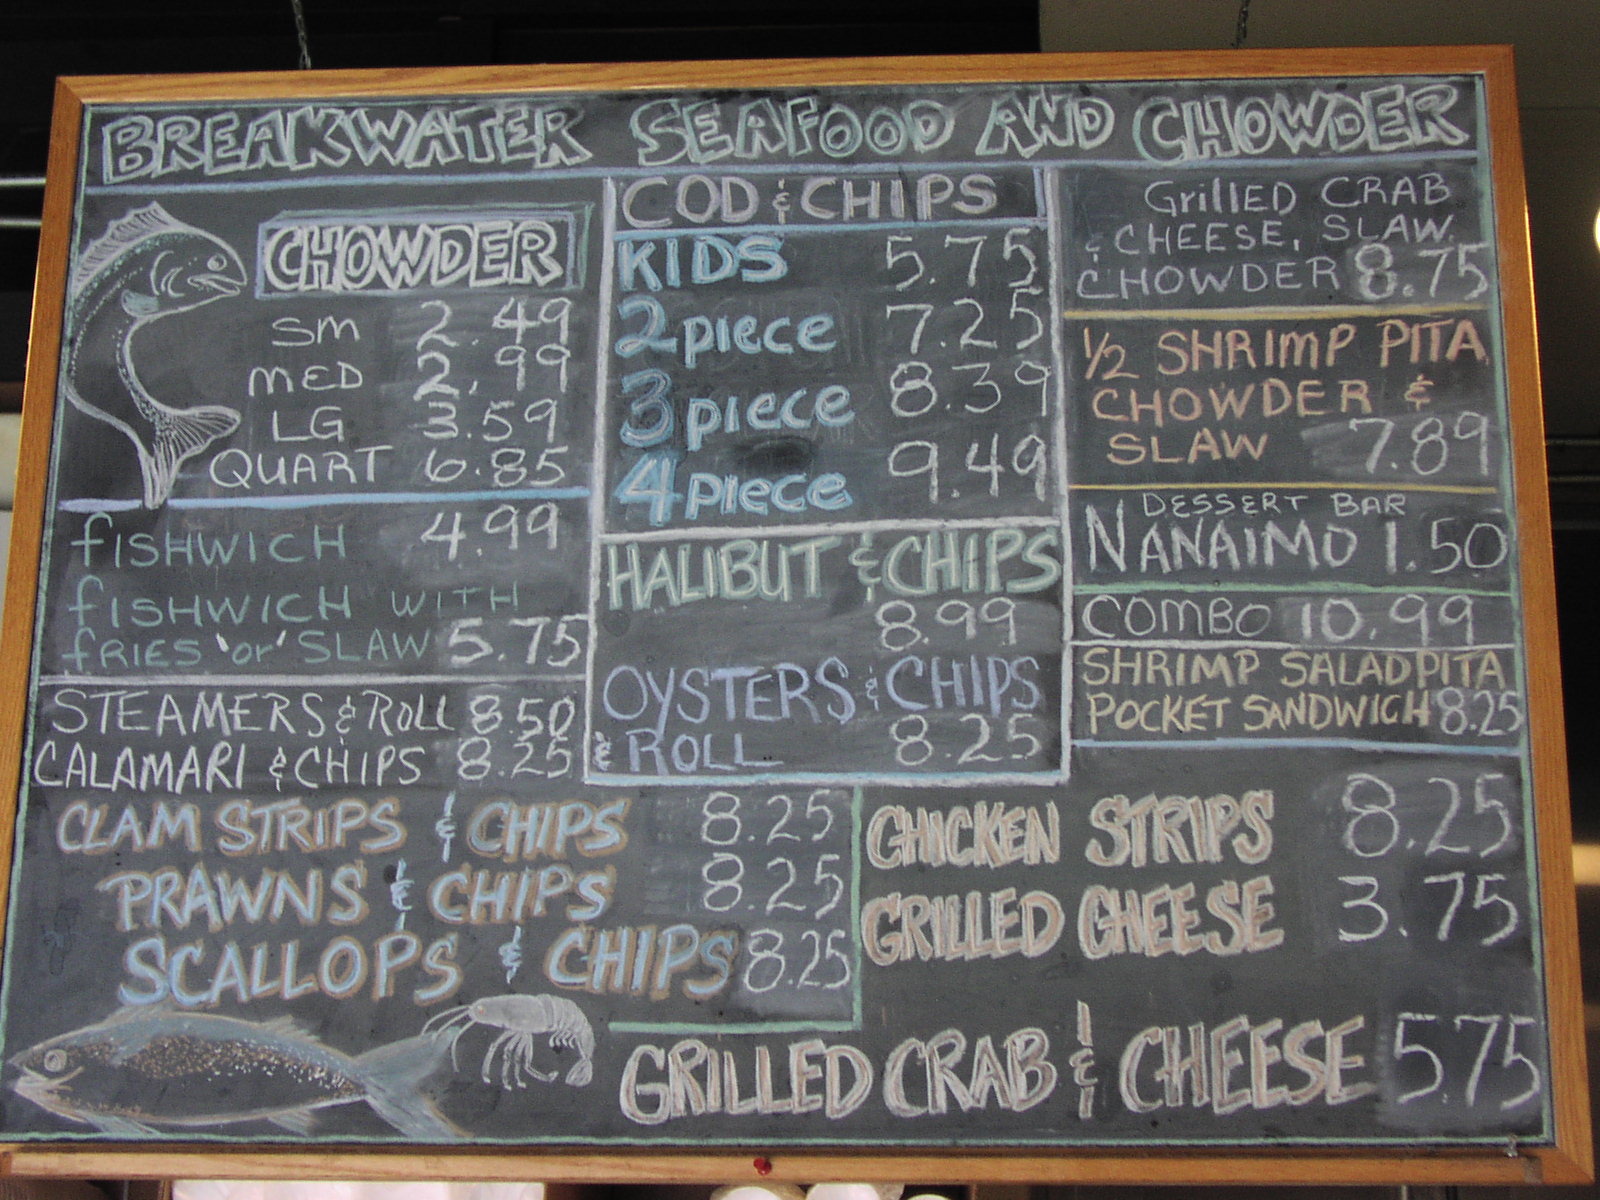 BREAKWATER SEAFOOD AND CHOWDER
CHOWDER
SM 2.49
MED 2.99
LG 3.59
QUART 6.85
fISHWICH 4.99
fISHWICH WITH
fRIES 'or' SLAW 5.75
STEAMERS & ROLL 8.50
CALAMARI & CHIPS 8.25
COD & CHIPS
KIDS 5.75
2 piece 7.25
3 piece 8.39
4 piece 9.49
HALIBUT & CHIPS
8.99
OYSTERS & CHIPS
& ROLL 8.25
GrillED CRAB
& CHEESE, SLAW
CHOWDER 8.75
1/2 SHRIMP PITA
CHOWDER &
SLAW 7.89
DESSERT BAR
NANAIMO 1.50
COMBO 10.99
SHRIMP SALAD PITA
POCKET SANDWICH 8.25
CLAM STRIPS & CHIPS 8.25
PRAWNS & CHIPS 8.25
SCALLOPS & CHIPS 8.25
CHICKEN STRIPS 8.25
GRILLED CHEESE 3.75
GRILLED CRAB & CHEESE 5.75